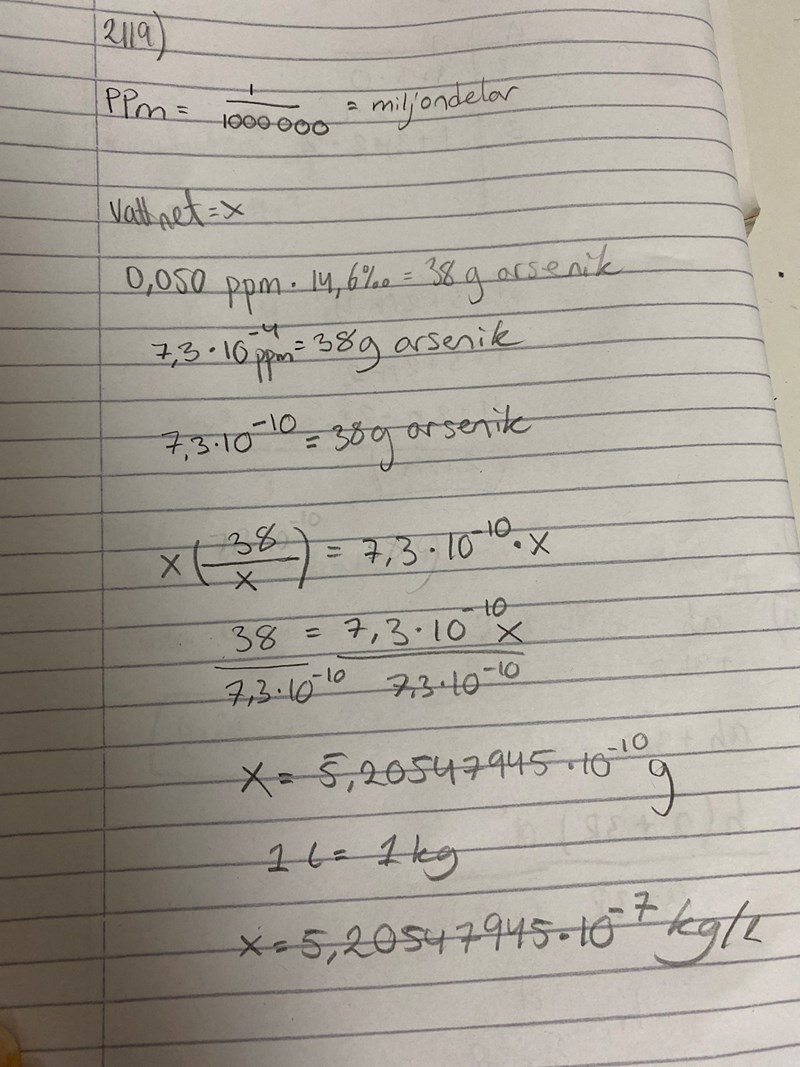 2119)
PPm = 1/1000 000 = miljondelar
Vattnet = x
0,050 ppm · 14,6‰ = 38 g arsenik
7,3 · 10^-4 ppm = 38g arsenik
7,3 · 10^-10 = 38g arsenik
x (38/x) = 7,3 · 10^-10 · x
38/7,3 · 10^-10 = 7,3 · 10^-10 x/7,3 · 10^-10
x = 5,20547945 · 10^-10 g
1 l = 1 kg
x = 5,20547945 · 10^-7 kg/l